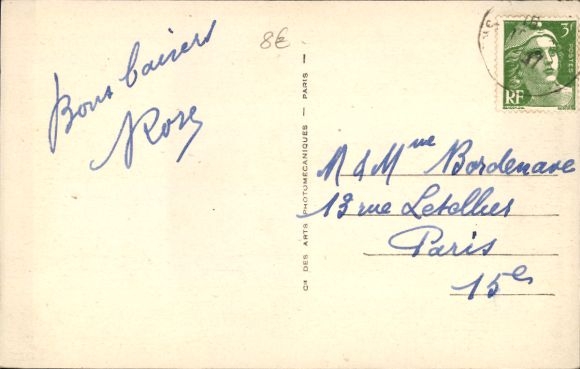 Bons baisers
Rose
8€
Cie DES ARTS PHOTOMÉCANIQUES — PARIS —
3F
POSTES
RF
47
M & Mme Bordenave
13 rue Letellier
Paris
15e